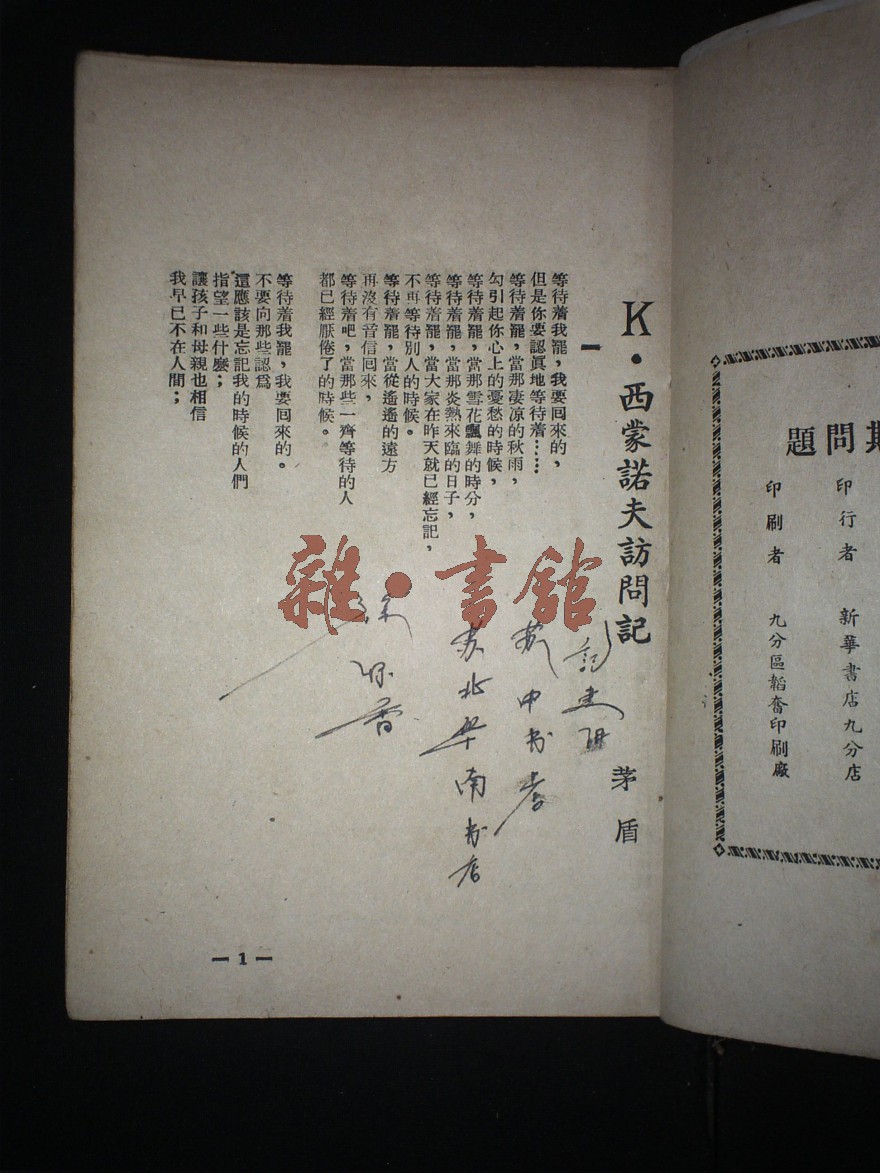 期問題
印行者 新華書店九分店
印刷者 九分區韜奮印刷廠
K·西蒙諾夫訪問記
茅盾
一
等待着我罷，我要囘來的，
但是你要認眞地等待着……
等待着罷，當那凄凉的秋雨，
勾引起你心上的憂愁的時候，
等待着罷，當那雪花飄舞的時分，
等待着罷，當那炎熱來臨的日子，
等待着罷，當大家在昨天就已經忘記，
不再等待別人的時候。
等待着罷，當從遙遙的遠方
再沒有音信囘來，
等待着吧，當那些一齊等待的人
都已經厭倦了的時候。
等待着我罷，我要囘來的。
不要向那些認爲
還應該是忘記我的時候的人們
指望一些什麼；
讓孩子和母親也相信
我早已不在人間；
中书店
苏北華南书店
雜·書館
— 1 —